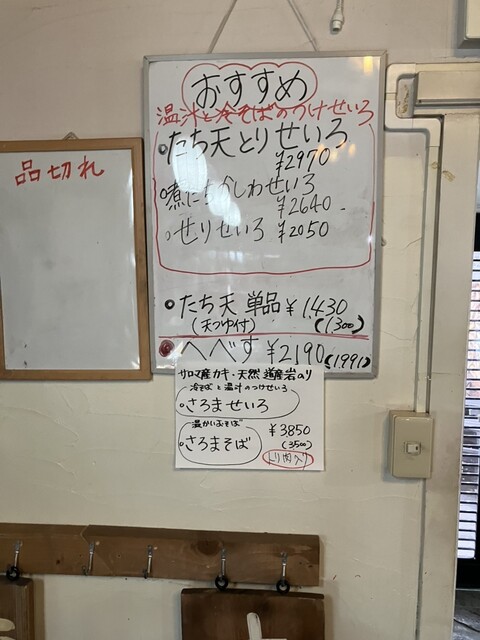 品切れ
おすすめ
温汁と冷そばのつけせいろ
たち天とりせいろ
¥2970
煮たちかしわせいろ
¥2640
せりせいろ ¥2050
たち天 単品 ¥1,430
(天つゆ付) (1,300)
へべす ¥2190 (1,991)
サロマ産カキ・天然道産岩のり
冷そばと温汁のつけせいろ
さろませいろ
温かいおそば
さろまそば
¥3850
(3500)
とり肉入り